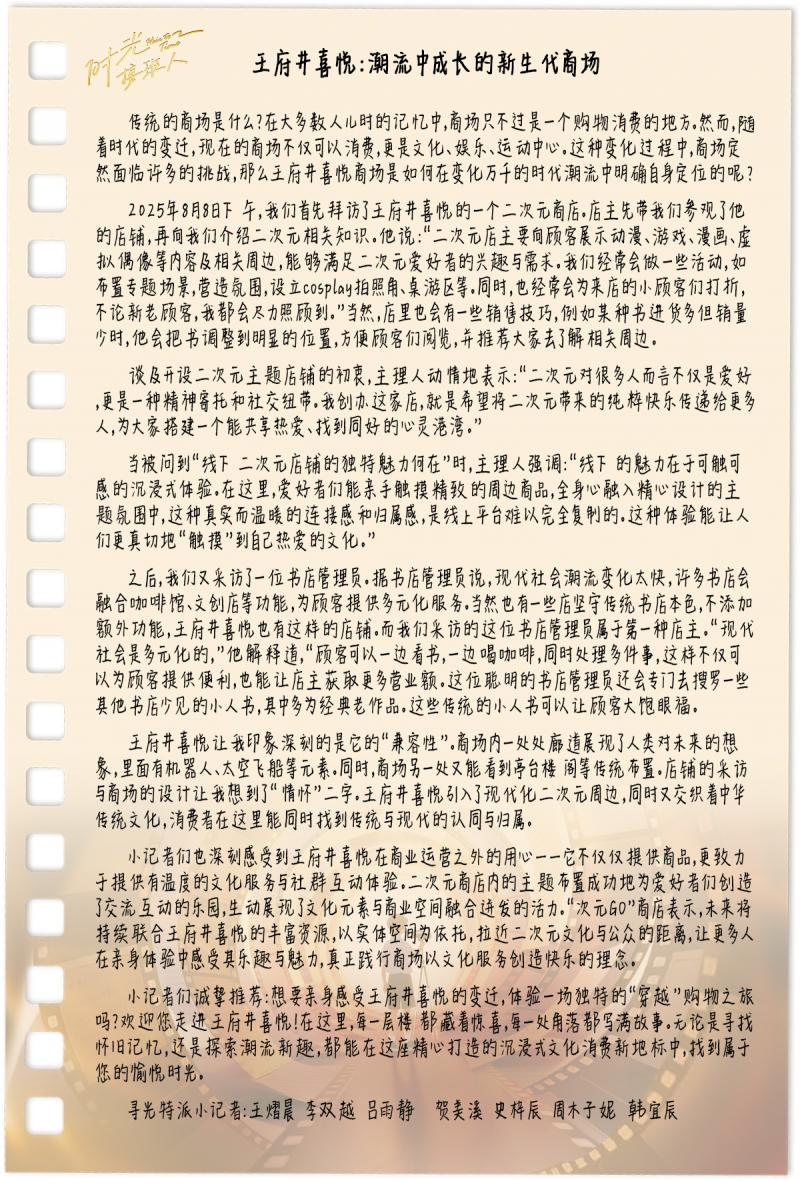 时光
接班人
王府井喜悦:潮流中成长的新生代商场
传统的商场是什么?在大多数人儿时的记忆中,商场只不过是一个购物消费的地方.然而,随
着时代的变迁,现在的商场不仅可以消费,更是文化、娱乐、运动中心.这种变化过程中,商场定
然面临许多的挑战,那么王府井喜悦商场是如何在变化万千的时代潮流中明确自身定位的呢?
2025年8月8日下 午,我们首先拜访了王府井喜悦的一个二次元商店.店主先带我们参观了他
的店铺,再向我们介绍二次元相关知识.他说:“二次元店主要向顾客展示动漫、游戏、漫画、虚
拟偶像等内容及相关周边,能够满足二次元爱好者的兴趣与需求.我们经常会做一些活动,如
布置专题场景,营造氛围,设立cosplay拍照角、桌游区等.同时,也经常会为来店的小顾客们打折,
不论新老顾客,我都会尽力照顾到.”当然,店里也会有一些销售技巧,例如某种书进货多但销量
少时,他会把书调整到明显的位置,方便顾客们阅览,并推荐大家去了解相关周边.
谈及开设二次元主题店铺的初衷,主理人动情地表示:“二次元对很多人而言不仅是爱好
,更是一种精神寄托和社交纽带.我创办这家店,就是希望将二次元带来的纯粹快乐传递给更多
人,为大家搭建一个能共享热爱、找到同好的心灵港湾.”
当被问到“线下 二次元店铺的独特魅力何在”时,主理人强调:“线下 的魅力在于可触可
感的沉浸式体验.在这里,爱好者们能亲手触摸精致的周边商品,全身心融入精心设计的主
题氛围中,这种真实而温暖的连接感和归属感,是线上平台难以完全复制的.这种体验能让人
们更真切地“触摸”到自己热爱的文化.”
之后,我们又采访了一位书店管理员.据书店管理员说,现代社会潮流变化太快,许多书店会
融合咖啡馆、文创店等功能,为顾客提供多元化服务.当然也有一些店坚守传统书店本色,不添加
额外功能,王府井喜悦也有这样的店铺.而我们采访的这位书店管理员属于第一种店主.“现代
社会是多元化的,”他解释道,“顾客可以一边看书,一边喝咖啡,同时处理多件事,这样不仅可
以为顾客提供便利,也能让店主获取更多营业额.这位聪明的书店管理员还会专门去搜罗一些
其他书店少见的小人书,其中多为经典老作品.这些传统的小人书可以让顾客大饱眼福.
王府井喜悦让我印象深刻的是它的“兼容性”.商场内一处处廊道展现了人类对未来的想
象,里面有机器人、太空飞船等元素.同时,商场另一处又能看到亭台楼 阁等传统布置.店铺的采访
与商场的设计让我想到了“情怀”二字.王府井喜悦引入了现代化二次元周边,同时又交织着中华
传统文化,消费者在这里能同时找到传统与现代的认同与归属.
小记者们也深刻感受到王府井喜悦在商业运营之外的用心——它不仅仅提供商品,更致力
于提供有温度的文化服务与社群互动体验.二次元商店内的主题布置成功地为爱好者们创造
了交流互动的乐园,生动展现了文化元素与商业空间融合迸发的活力.“次元GO”商店表示,未来将
持续联合王府井喜悦的丰富资源,以实体空间为依托,拉近二次元文化与公众的距离,让更多人
在亲身体验中感受其乐趣与魅力,真正践行商场以文化服务创造快乐的理念.
小记者们诚挚推荐:想要亲身感受王府井喜悦的变迁,体验一场独特的“穿越”购物之旅
吗?欢迎您走进王府井喜悦!在这里,每一层楼 都藏着惊喜,每一处角落都写满故事.无论是寻找
怀旧记忆,还是探索潮流新趣,都能在这座精心打造的沉浸式文化消费新地标中,找到属于
您的愉悦时光.
寻光特派小记者:王熠晨 李双越 吕雨静 贺美溪 史梓辰 周木子妮 韩宜辰